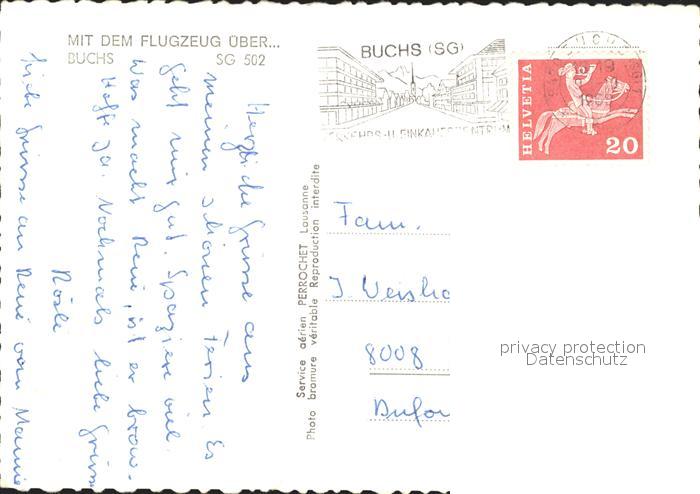 MIT DEM FLUGZEUG ÜBER...
BUCHS SG 502
Herzliche Grüsse aus
meinen schönen Ferien. Es
geht mir gut. Spaziere viel.
Was macht René, ist er brav.
Hoffe ja. Nochmals liebe Grüsse
Rösli
Liebe Grüsse an René von Mamie
Service aérien PERROCHET Lausanne
Photo bromure véritable Reproduction interdite
BUCHS (SG)
VERKEHRS-U.EINKAUFSZENTRUM
HELVETIA
20
Fam.
J. Weisho
8008
Dufou
privacy protection
Datenschutz